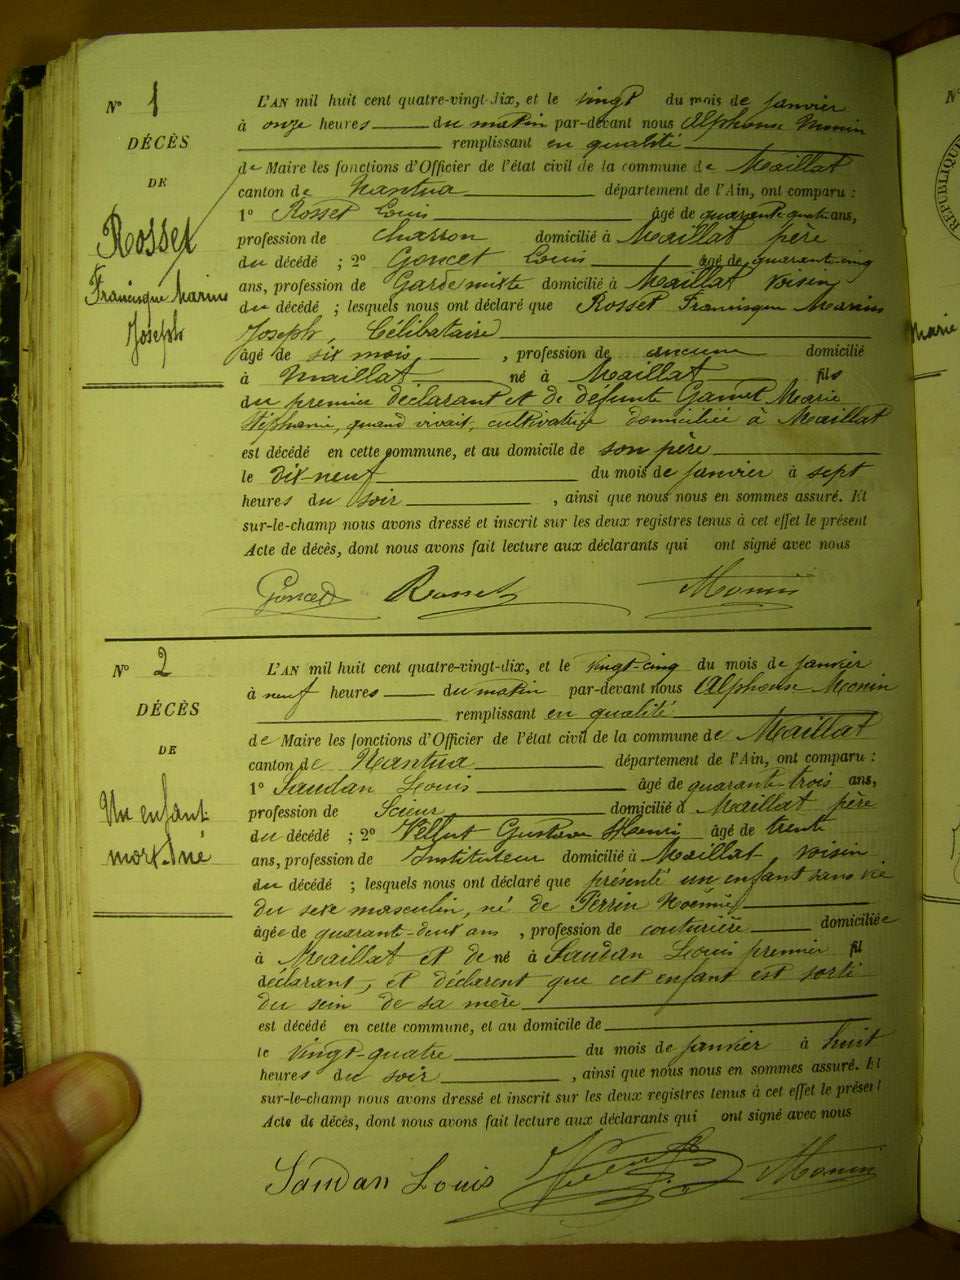 N° 1
DÉCÈS
DE
Rosset
Francisque Marius
Joseph
L'AN mil huit cent quatre-vingt-dix, et le vingt du mois de janvier
à onze heures du matin par-devant nous Alphonse Monin
remplissant en qualité
de Maire les fonctions d'Officier de l'état civil de la commune de Maillat
canton de Nantua département de l'Ain, ont comparu :
1° Rosset Louis âgé de quarante quatre ans,
profession de charron domicilié à Maillat père
du décédé ; 2° Goncet Louis âgé de quarante-cinq
ans, profession de Garde mixte domicilié à Maillat voisin
du décédé ; lesquels nous ont déclaré que Rosset Francisque Marius
Joseph, Célibataire
âgé de six mois , profession de aucune domicilié
à Maillat né à Maillat fils
du premier déclarant et de défunte Marie
Stéphanie, quand vivait, cultivatrice domiciliée à Maillat
est décédé en cette commune, et au domicile de son père
le dix-neuf du mois de janvier à sept
heures du soir , ainsi que nous nous en sommes assuré. Et
sur-le-champ nous avons dressé et inscrit sur les deux registres tenus à cet effet le présent
Acte de décès, dont nous avons fait lecture aux déclarants qui ont signé avec nous
Goncet Rosset Monin
N° 2
DÉCÈS
DE
Un enfant
mort-né
L'AN mil huit cent quatre-vingt-dix, et le vingt-cinq du mois de janvier
à neuf heures du matin par-devant nous Alphonse Monin
remplissant en qualité
de Maire les fonctions d'Officier de l'état civil de la commune de Maillat
canton de Nantua département de l'Ain, ont comparu :
1° Saudan Louis âgé de quarante-trois ans,
profession de Scieur domicilié à Maillat père
du décédé ; 2° Gustave Henri âgé de trente
ans, profession de Instituteur domicilié à Maillat voisin
du décédé ; lesquels nous ont déclaré que présenté un enfant sans vie
du sexe masculin, né de Perrin Noémie
âgée de quarante-deux ans , profession de couturière domiciliée
à Maillat et de né à Saudan Louis premier fil
déclarant, et déclarent que cet enfant est sorti
du sein de sa mère
est décédé en cette commune, et au domicile de
le vingt-quatre du mois de janvier à huit
heures du soir , ainsi que nous nous en sommes assuré. Et
sur-le-champ nous avons dressé et inscrit sur les deux registres tenus à cet effet le présent
Acte de décès, dont nous avons fait lecture aux déclarants qui ont signé avec nous
Saudan Louis Monin
N°
RÉPUBLIQUE
Marie